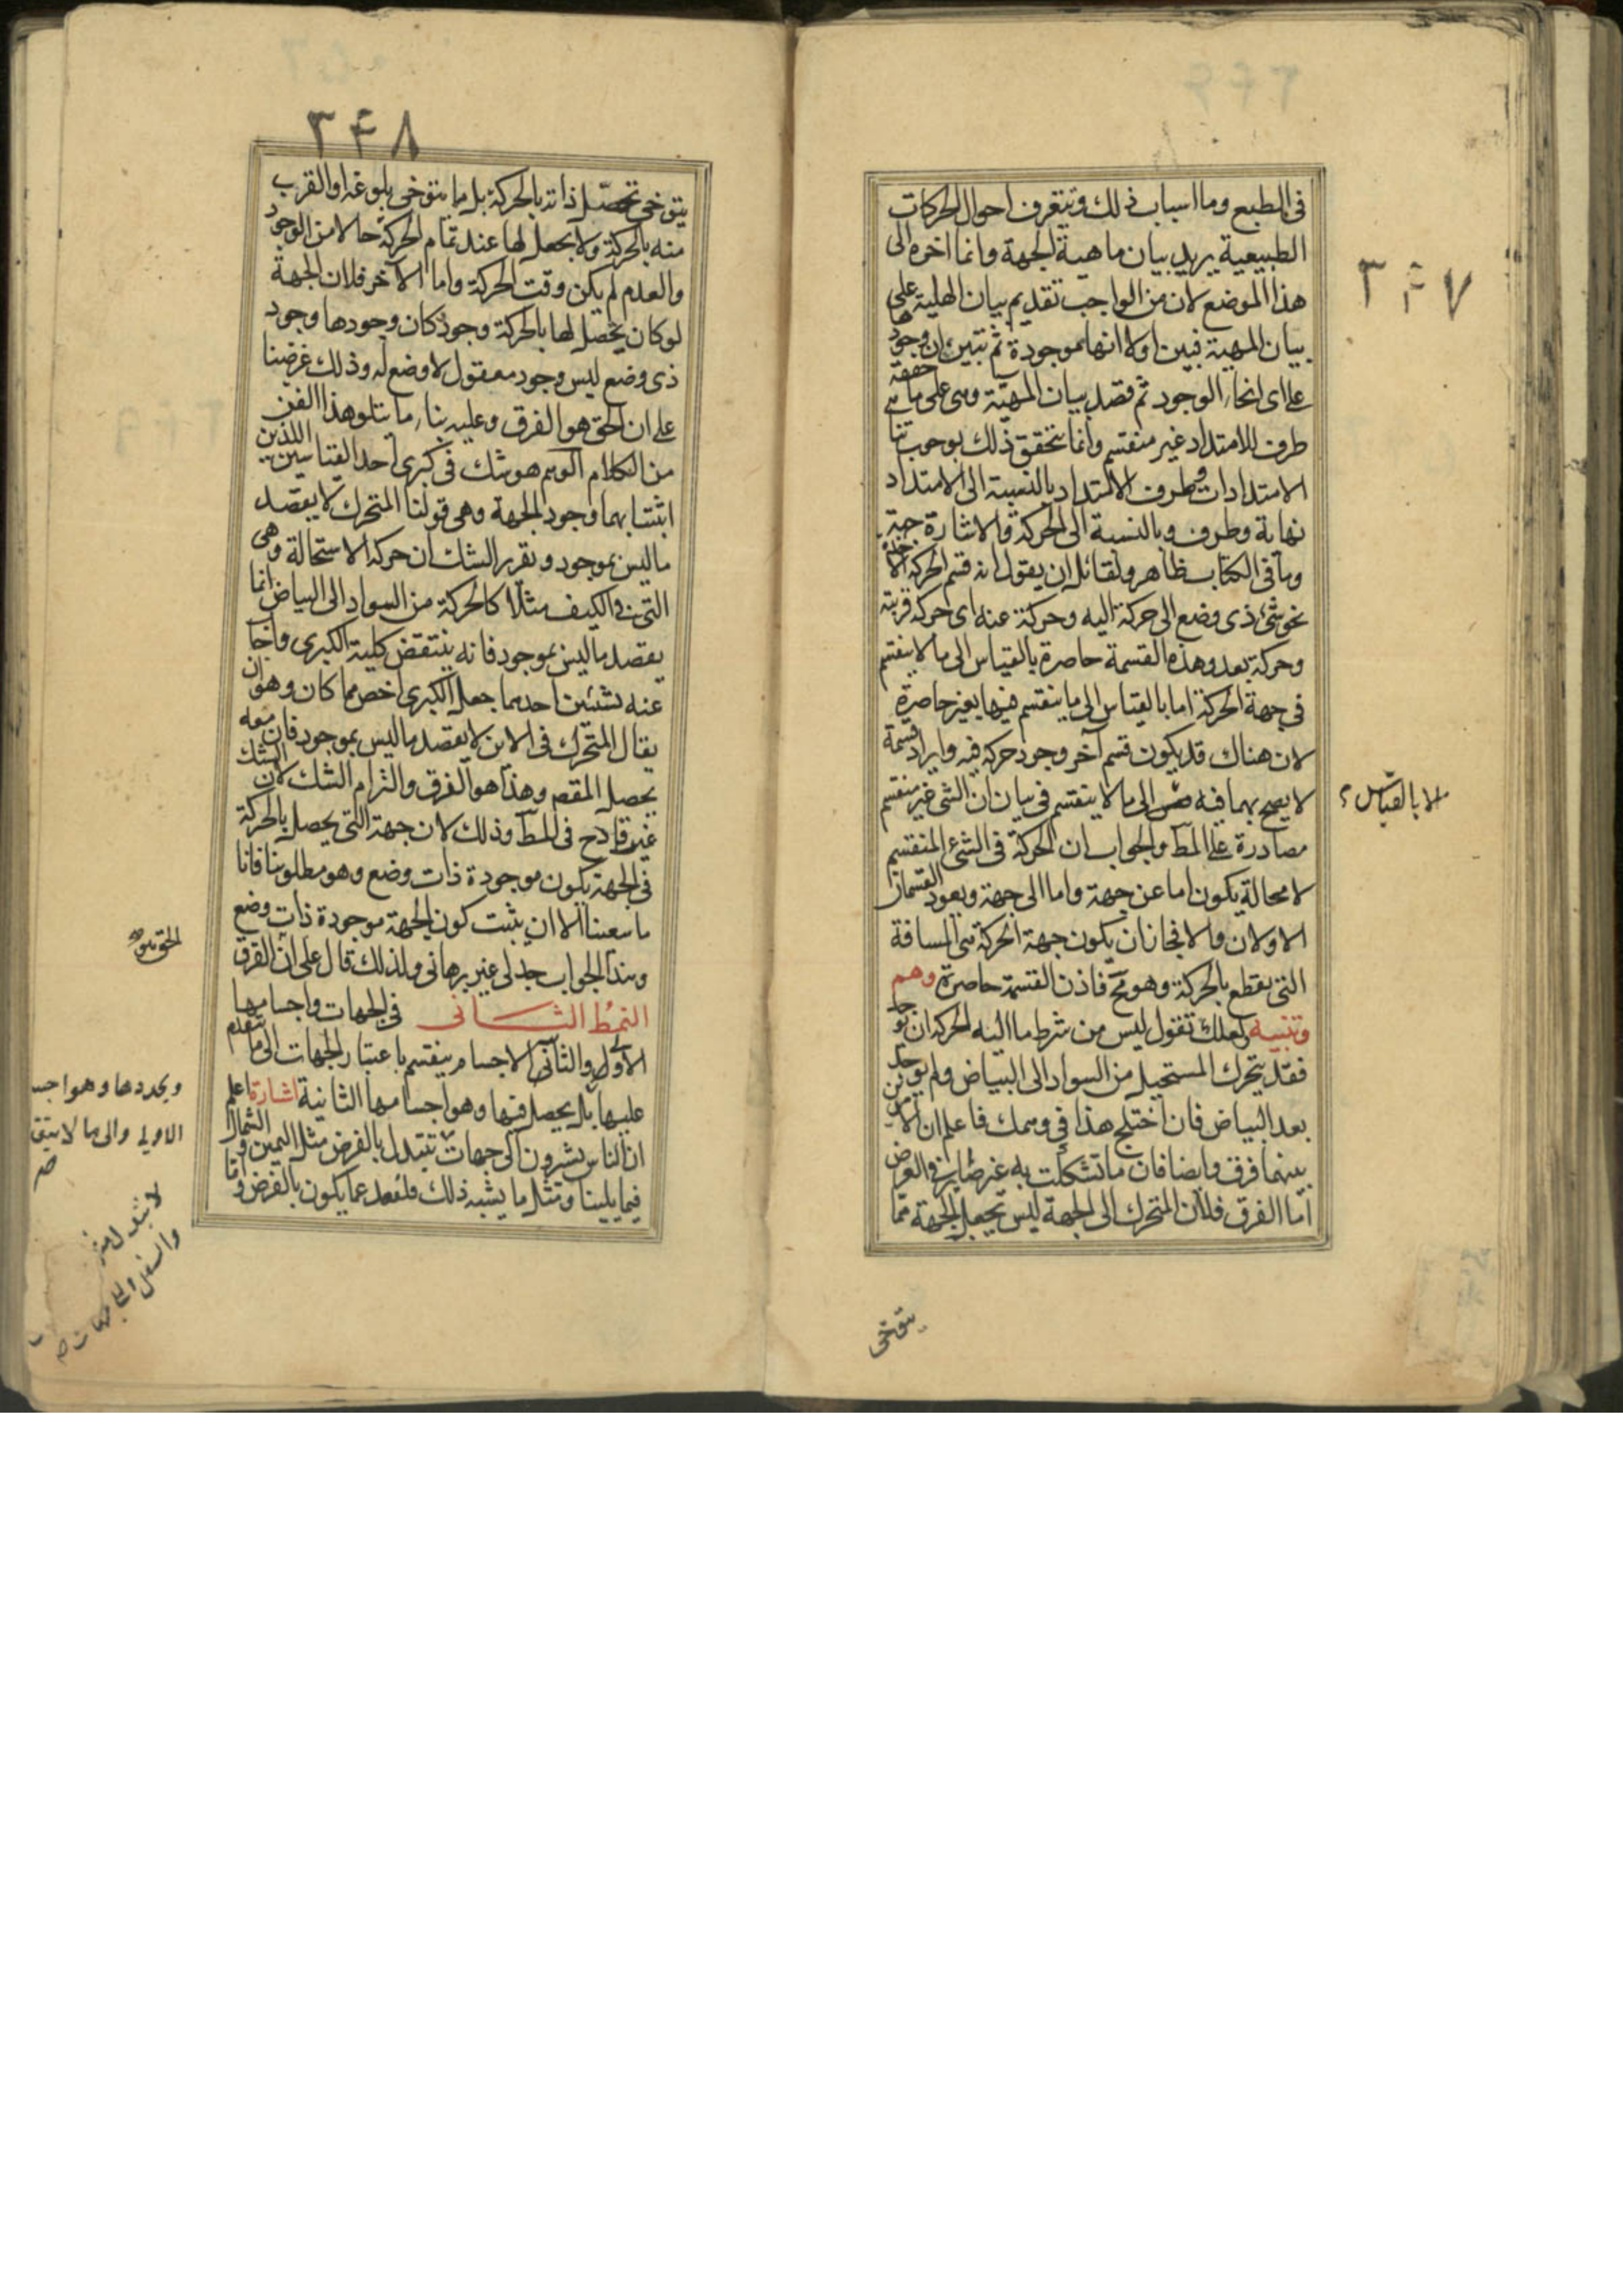 ٣٤٧
في الطبع وما اسباب ذلك ويتعرف احوال الحركات
الطبيعية يريد بيان ماهية الجهة وانما اخره الى
هذا الموضع لان من الواجب تقديم بيان الهلية على
بيان المهية فبين اولا انها موجودة ثم تبين ان وجودها
على اى انحاء الوجود ثم قصد بيان المهية وهى على ما حققه
طرف للامتداد غير منقسم وانما يتحقق ذلك بوجوب تناهى
الامتدادات وطرف الامتداد بالنسبة الى الامتداد
نهاية وطرف وبالنسبة الى الحركة والاشارة جهة
وما فى الكتاب ظاهر ولقائل ان يقول انه قسم الحركة الآخذة
نحو شئ ذى وضع الى حركة اليه وحركة عنه اى حركة قريبة
وحركة بعد وهذه القسمة حاصرة بالقياس الى ما لا ينقسم
فى جهة الحركة اما بالقياس الى ما ينقسم فيها فغير حاصرة
لان هناك قد يكون قسم آخر وجود حركة فيه وايراد قسمة
لا يصح بهما فيه الى ما لا ينقسم فى بيان ان الشئ غير منقسم
الا بالقياس
مصادرة على المط والجواب ان الحركة فى الشئ المنقسم
لا محالة يكون اما عن جهة واما الى جهة ويعود القسمان
الاولان والا فجاز ان يكون جهة الحركة هى المسافة
التى يقطع بالحركة وهو مح فاذن القسمة حاصرة وهم
وتنبيه لعلك تقول ليس من شرط ما اليه الحركة ان يوجد
فقد يتحرك المستحيل من السواد الى البياض ولم يوجد
بعد البياض فان اختلج هذا فى وهمك فاعلم ان الامرين
بينهما فرق وايضا فان ما تشككت به غير ضاير فى الغرض
اما الفرق فلان المتحرك الى الجهة ليس يجعل الجهة مما
يتوخى
٣٤٨
يتوخى تحصيل ذاته بالحركة بل ما يتوخى بلوغه او القرب
منه بالحركة ولا يجعل لها عند تمام الحركة حالا من الوجود
والعدم لم يكن وقت الحركة واما الآخر فلان الجهة
لو كان يحصل لها بالحركة وجود كان وجودها وجود
ذى وضع ليس وجود معقول لا وضع له وذلك غرضنا
على ان الحق هو الفرق وعليه بناء ما يتلو هذا الفن
من الكلام الوهم هو شك فى كبرى احد القياسين اللذين
اثبتنا بهما وجود الجهة وهى قولنا المتحرك لا يقصد
ما ليس بموجود وتقرر الشك ان حركة الاستحالة وهى
التى فى الكيف مثلا كالحركة من السواد الى البياض انما
يقصد ما ليس بموجود فانه ينتقض كلية الكبرى واجاب
عنه بشيئين احدهما جعل الكبرى اخص مما كان وهو ان
يقال المتحرك فى الاين لا يقصد ما ليس بموجود فان معه
يحصل المقصد وهذا هو الفرق والتزام الشك لان الشك
غير قادح فى المط وذلك لان جهة التى يحصل بالحركة
فى الجهة يكون موجودة ذات وضع وهو مطلوبنا فانا
ما سعينا الا ان يثبت كون الجهة موجودة ذات وضع
وهذا الجواب جدلى غير برهانى ولذلك قال على ان الفرق
النمط الثانى فى الجهات واجسامها
الاولى والثانى الاجسام ينقسم باعتبار الجهات الى ما يتقدم
عليها بل يحصل فيها وهو اجسامها الثانية اشارة اعلم
ان الناس يشيرون الى جهات تتبدل بالفرض مثل اليمين والشمال
فيما يلينا ومثل ما يشبه ذلك فلنعد عما يكون بالفرض واما
ويحددها وهو اجسا
الاولى والى ما لا يتقدم
صح
لا يتبدل